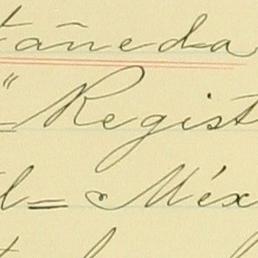 tañeda
"Regist
l= Méx